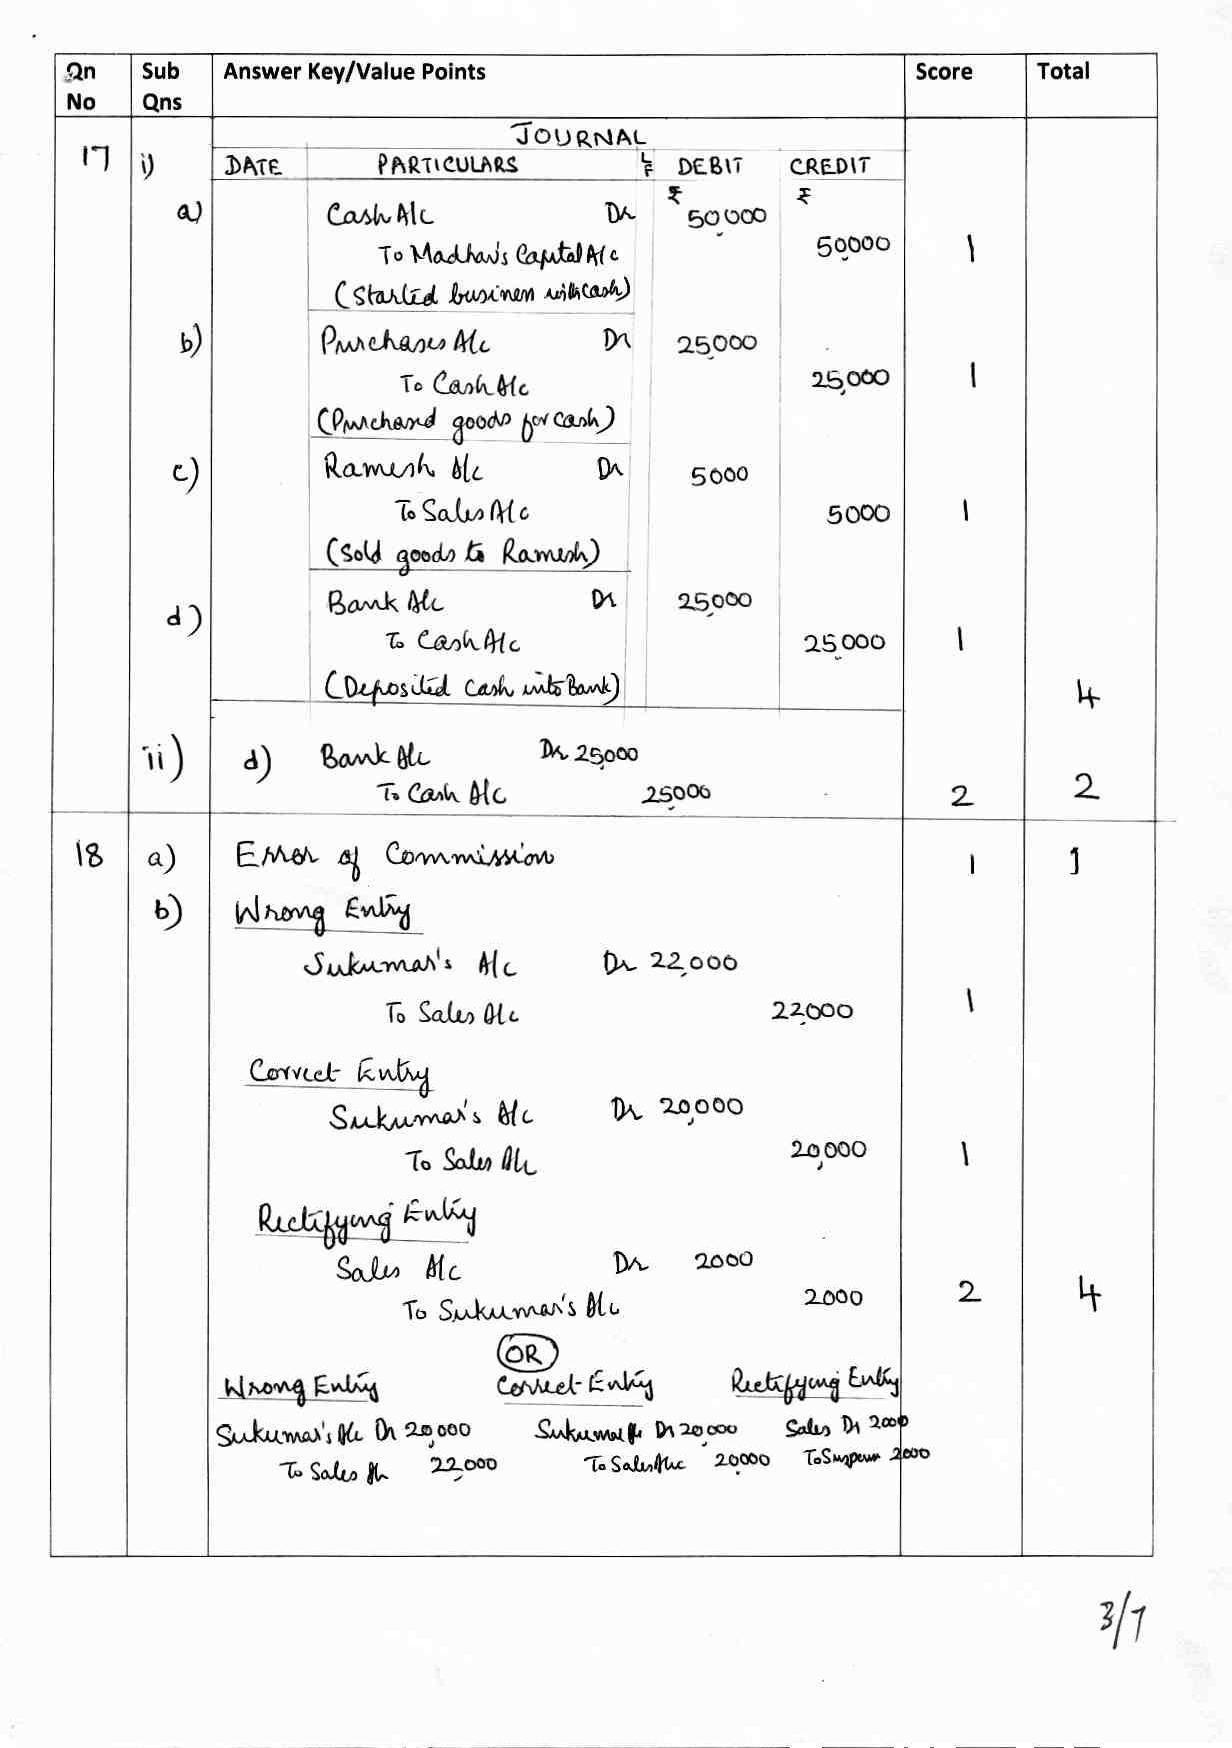 Qn No Sub Qns Answer Key/Value Points Score Total
JOURNAL
17 i) DATE PARTICULARS LF DEBIT CREDIT
₹ ₹
a) Cash A/c Dr 50000
To Madhav's Capital A/c 50000 1
(Started business with cash)
b) Purchases A/c Dr 25000
To Cash A/c 25,000 1
(Purchased goods for cash)
c) Ramesh A/c Dr 5000
To Sales A/c 5000 1
(Sold goods to Ramesh)
d) Bank A/c Dr 25000
To Cash A/c 25000 1
(Deposited cash into Bank)
4
ii) d) Bank A/c Dr 25000
To Cash A/c 25000 2 2
18 a) Error of Commission 1 1
b) Wrong Entry
Sukumar's A/c Dr 22,000
To Sales A/c 22,000 1
Correct Entry
Sukumar's A/c Dr 20,000
To Sales A/c 20,000 1
Rectifying Entry
Sales A/c Dr 2000
To Sukumar's A/c 2000 2 4
OR
Wrong Entry Correct Entry Rectifying Entry
Sukumar's A/c Dr 20,000 Sukumar A/c Dr 20,000 Sales Dr 2000
To Sales A/c 22,000 To Sales A/c 20000 To Suspense 2000
3/7